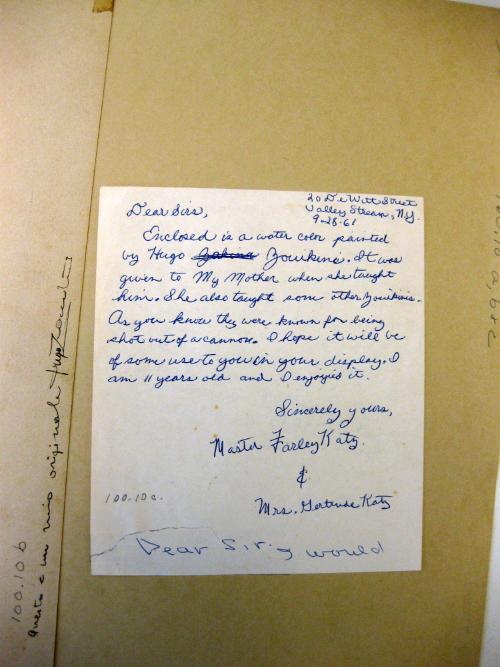 20 De Witt Street
Valley Stream, N.Y.
9-28-61
Dear Sirs,
Enclosed is a water color painted
by Hugo Zouikini. It was
given to My Mother when she taught
him. She also taught som other Zouikinis.
As you know they were known for being
shot out of a cannon. I hope it will be
of some use to you in your display. I
am 11 years old and I enjoyied it.
Sincerely yours,
Master Farley Katz
&
Mrs. Gertrude Katz
100.10c.
Dear Sir, y would
100.10b
questo e un mio originale